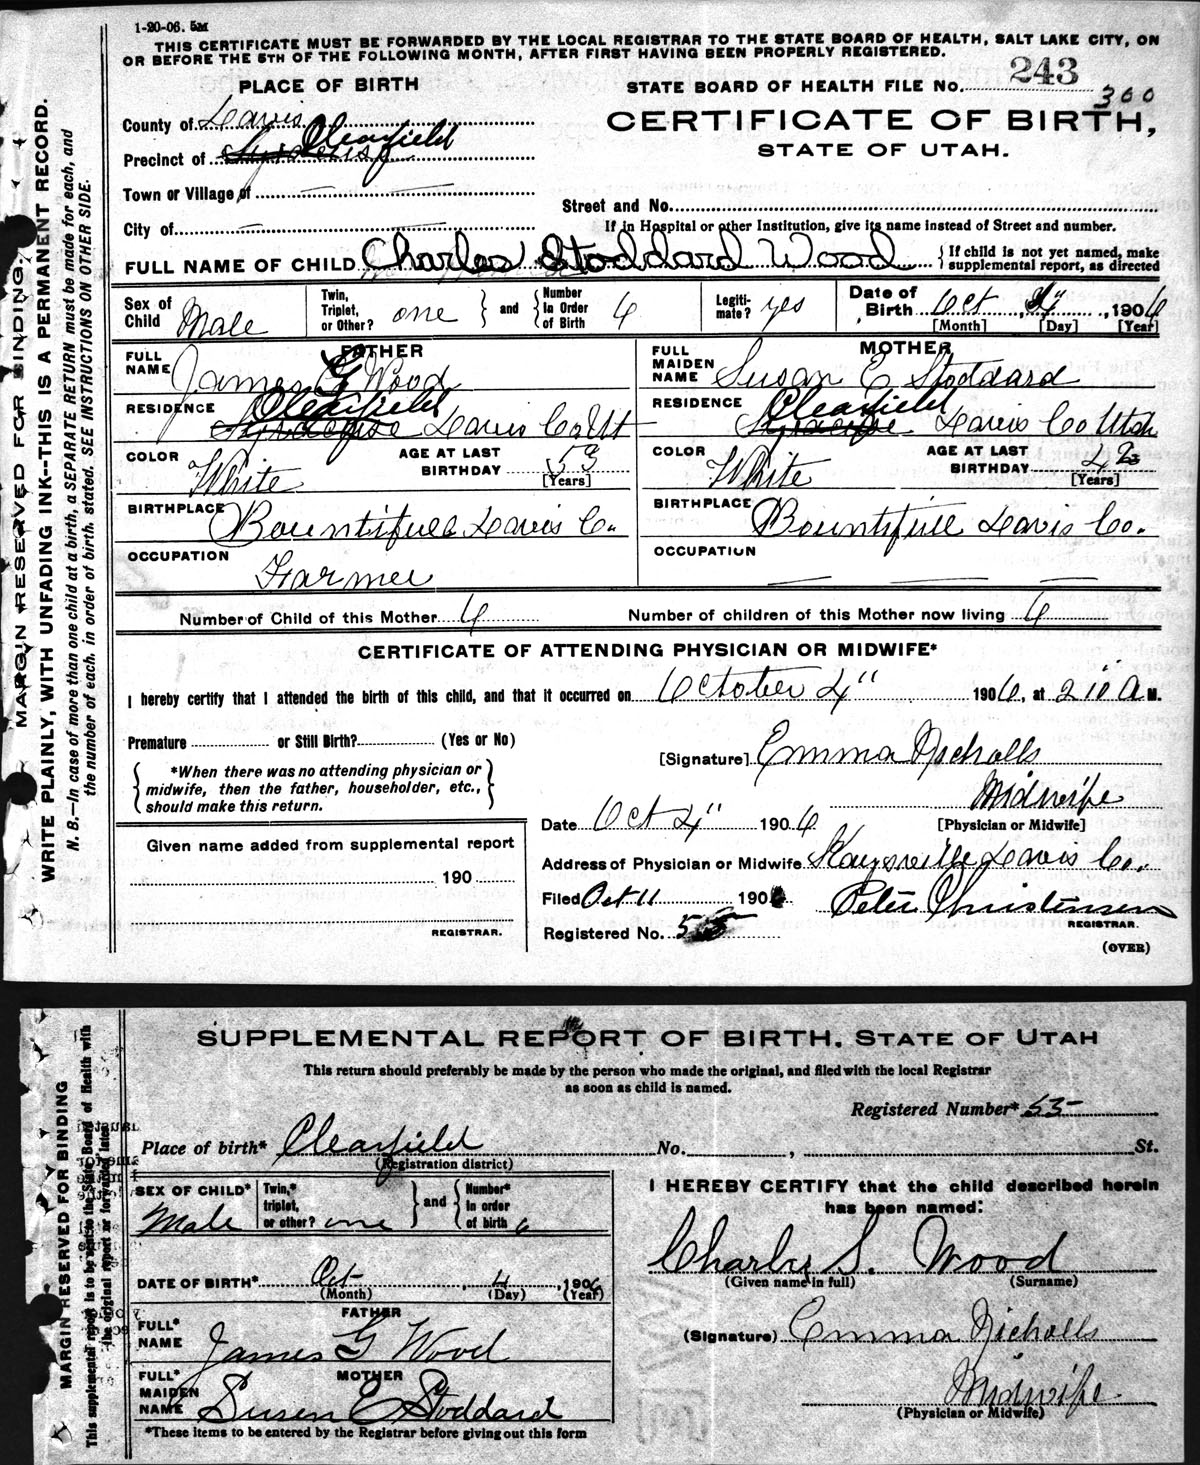 1-20-06. 5M
THIS CERTIFICATE MUST BE FORWARDED BY THE LOCAL REGISTRAR TO THE STATE BOARD OF HEALTH, SALT LAKE CITY, ON
OR BEFORE THE 5TH OF THE FOLLOWING MONTH, AFTER FIRST HAVING BEEN PROPERLY REGISTERED.
PLACE OF BIRTH
STATE BOARD OF HEALTH FILE No. 243
300
County of Davis
CERTIFICATE OF BIRTH,
Precinct of Syracuse Clearfield
STATE OF UTAH.
Town or Village of
Street and No.
City of
If in Hospital or other Institution, give its name instead of Street and number.
FULL NAME OF CHILD Charles Stoddard Wood { If child is not yet named, make supplemental report, as directed
Sex of Child Male
Twin, Triplet, or Other? one } and { Number in Order of Birth 6
Legitimate? yes
Date of Birth Oct 4", 1906
[Month] [Day] [Year]
FATHER
MOTHER
FULL NAME James G Wood
FULL MAIDEN NAME Susan E Stoddard
RESIDENCE Syracuse Clearfield Davis Co Ut
RESIDENCE Syracuse Clearfield Davis Co Utah
COLOR White
AGE AT LAST BIRTHDAY 53
[Years]
COLOR White
AGE AT LAST BIRTHDAY 42
[Years]
BIRTHPLACE Bountifull Davis Co.
BIRTHPLACE Bountifull Davis Co.
OCCUPATION Farmer
OCCUPATION
Number of Child of this Mother 6
Number of children of this Mother now living 6
CERTIFICATE OF ATTENDING PHYSICIAN OR MIDWIFE*
I hereby certify that I attended the birth of this child, and that it occurred on October 4" 1906, at 2 10 A M.
Premature or Still Birth? (Yes or No)
[Signature] Emma Nicholls
Midwife
[Physician or Midwife]
*When there was no attending physician or
midwife, then the father, householder, etc.,
should make this return.
Date Oct 4" 1906
Given name added from supplemental report
190
REGISTRAR.
Address of Physician or Midwife Kaysville Davis Co.
Filed Oct 11 1906 Peter Christensen
REGISTRAR.
Registered No. 55
(OVER)
MARGIN RESERVED FOR BINDING
WRITE PLAINLY, WITH UNFADING INK--THIS IS A PERMANENT RECORD.
N. B.—In case of more than one child at a birth, a SEPARATE RETURN must be made for each, and
the number of each, in order of birth, stated. SEE INSTRUCTIONS ON OTHER SIDE.
SUPPLEMENTAL REPORT OF BIRTH. STATE OF UTAH
This return should preferably be made by the person who made the original, and filed with the local Registrar
as soon as child is named.
Registered Number* 55
Place of birth* Clearfield No. , St.
(Registration district)
SEX OF CHILD* Male
Twin,* triplet, or other? one } and { Number* in order of birth 6
I HEREBY CERTIFY that the child described herein
has been named:
Charly S. Wood
(Given name in full) (Surname)
DATE OF BIRTH* Oct, 4, 1906
(Month) (Day) (Year)
FATHER
FULL* NAME James G Wood
(Signature) Emma Nicholls
Midwife
(Physician or Midwife)
MOTHER
FULL* MAIDEN NAME Susen E Stoddard
*These items to be entered by the Registrar before giving out this form
MARGIN RESERVED FOR BINDING
This supplemental report is to be sent to the State Board of Health with
the original report or forwarded later.